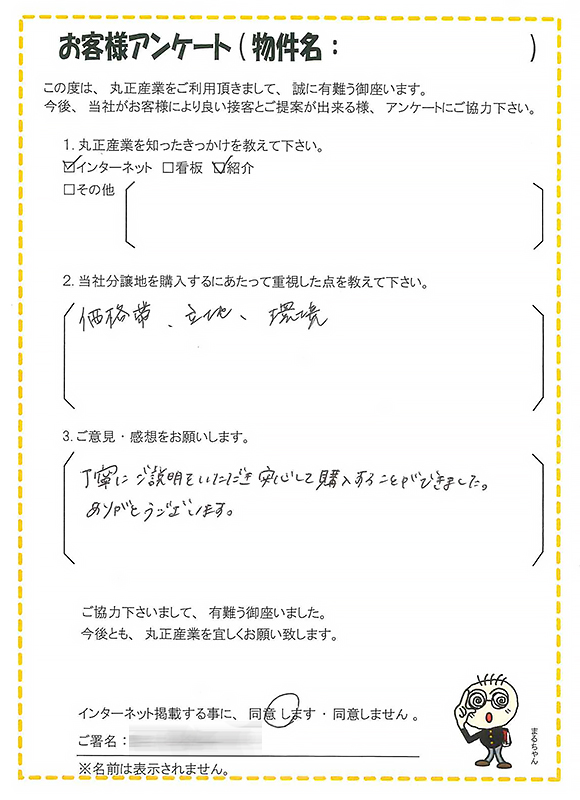 お客様アンケート(物件名：　　　　　)
この度は、丸正産業をご利用頂きまして、誠に有難う御座います。
今後、当社がお客様により良い接客とご提案が出来る様、アンケートにご協力下さい。
1. 丸正産業を知ったきっかけを教えて下さい。
☑インターネット □看板 ☑紹介
□その他
2. 当社分譲地を購入するにあたって重視した点を教えて下さい。
価格帯、立地、環境
3. ご意見・感想をお願いします。
丁寧にご説明をいただき安心して購入することができました。
ありがとうございます。
ご協力下さいまして、有難う御座いました。
今後とも、丸正産業を宜しくお願い致します。
インターネット掲載する事に、同意します・同意しません。
ご署名：
※名前は表示されません。
まるちゃん